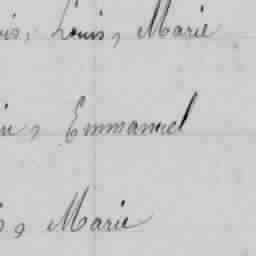 Louis, Marie
Emmanuel
Marie